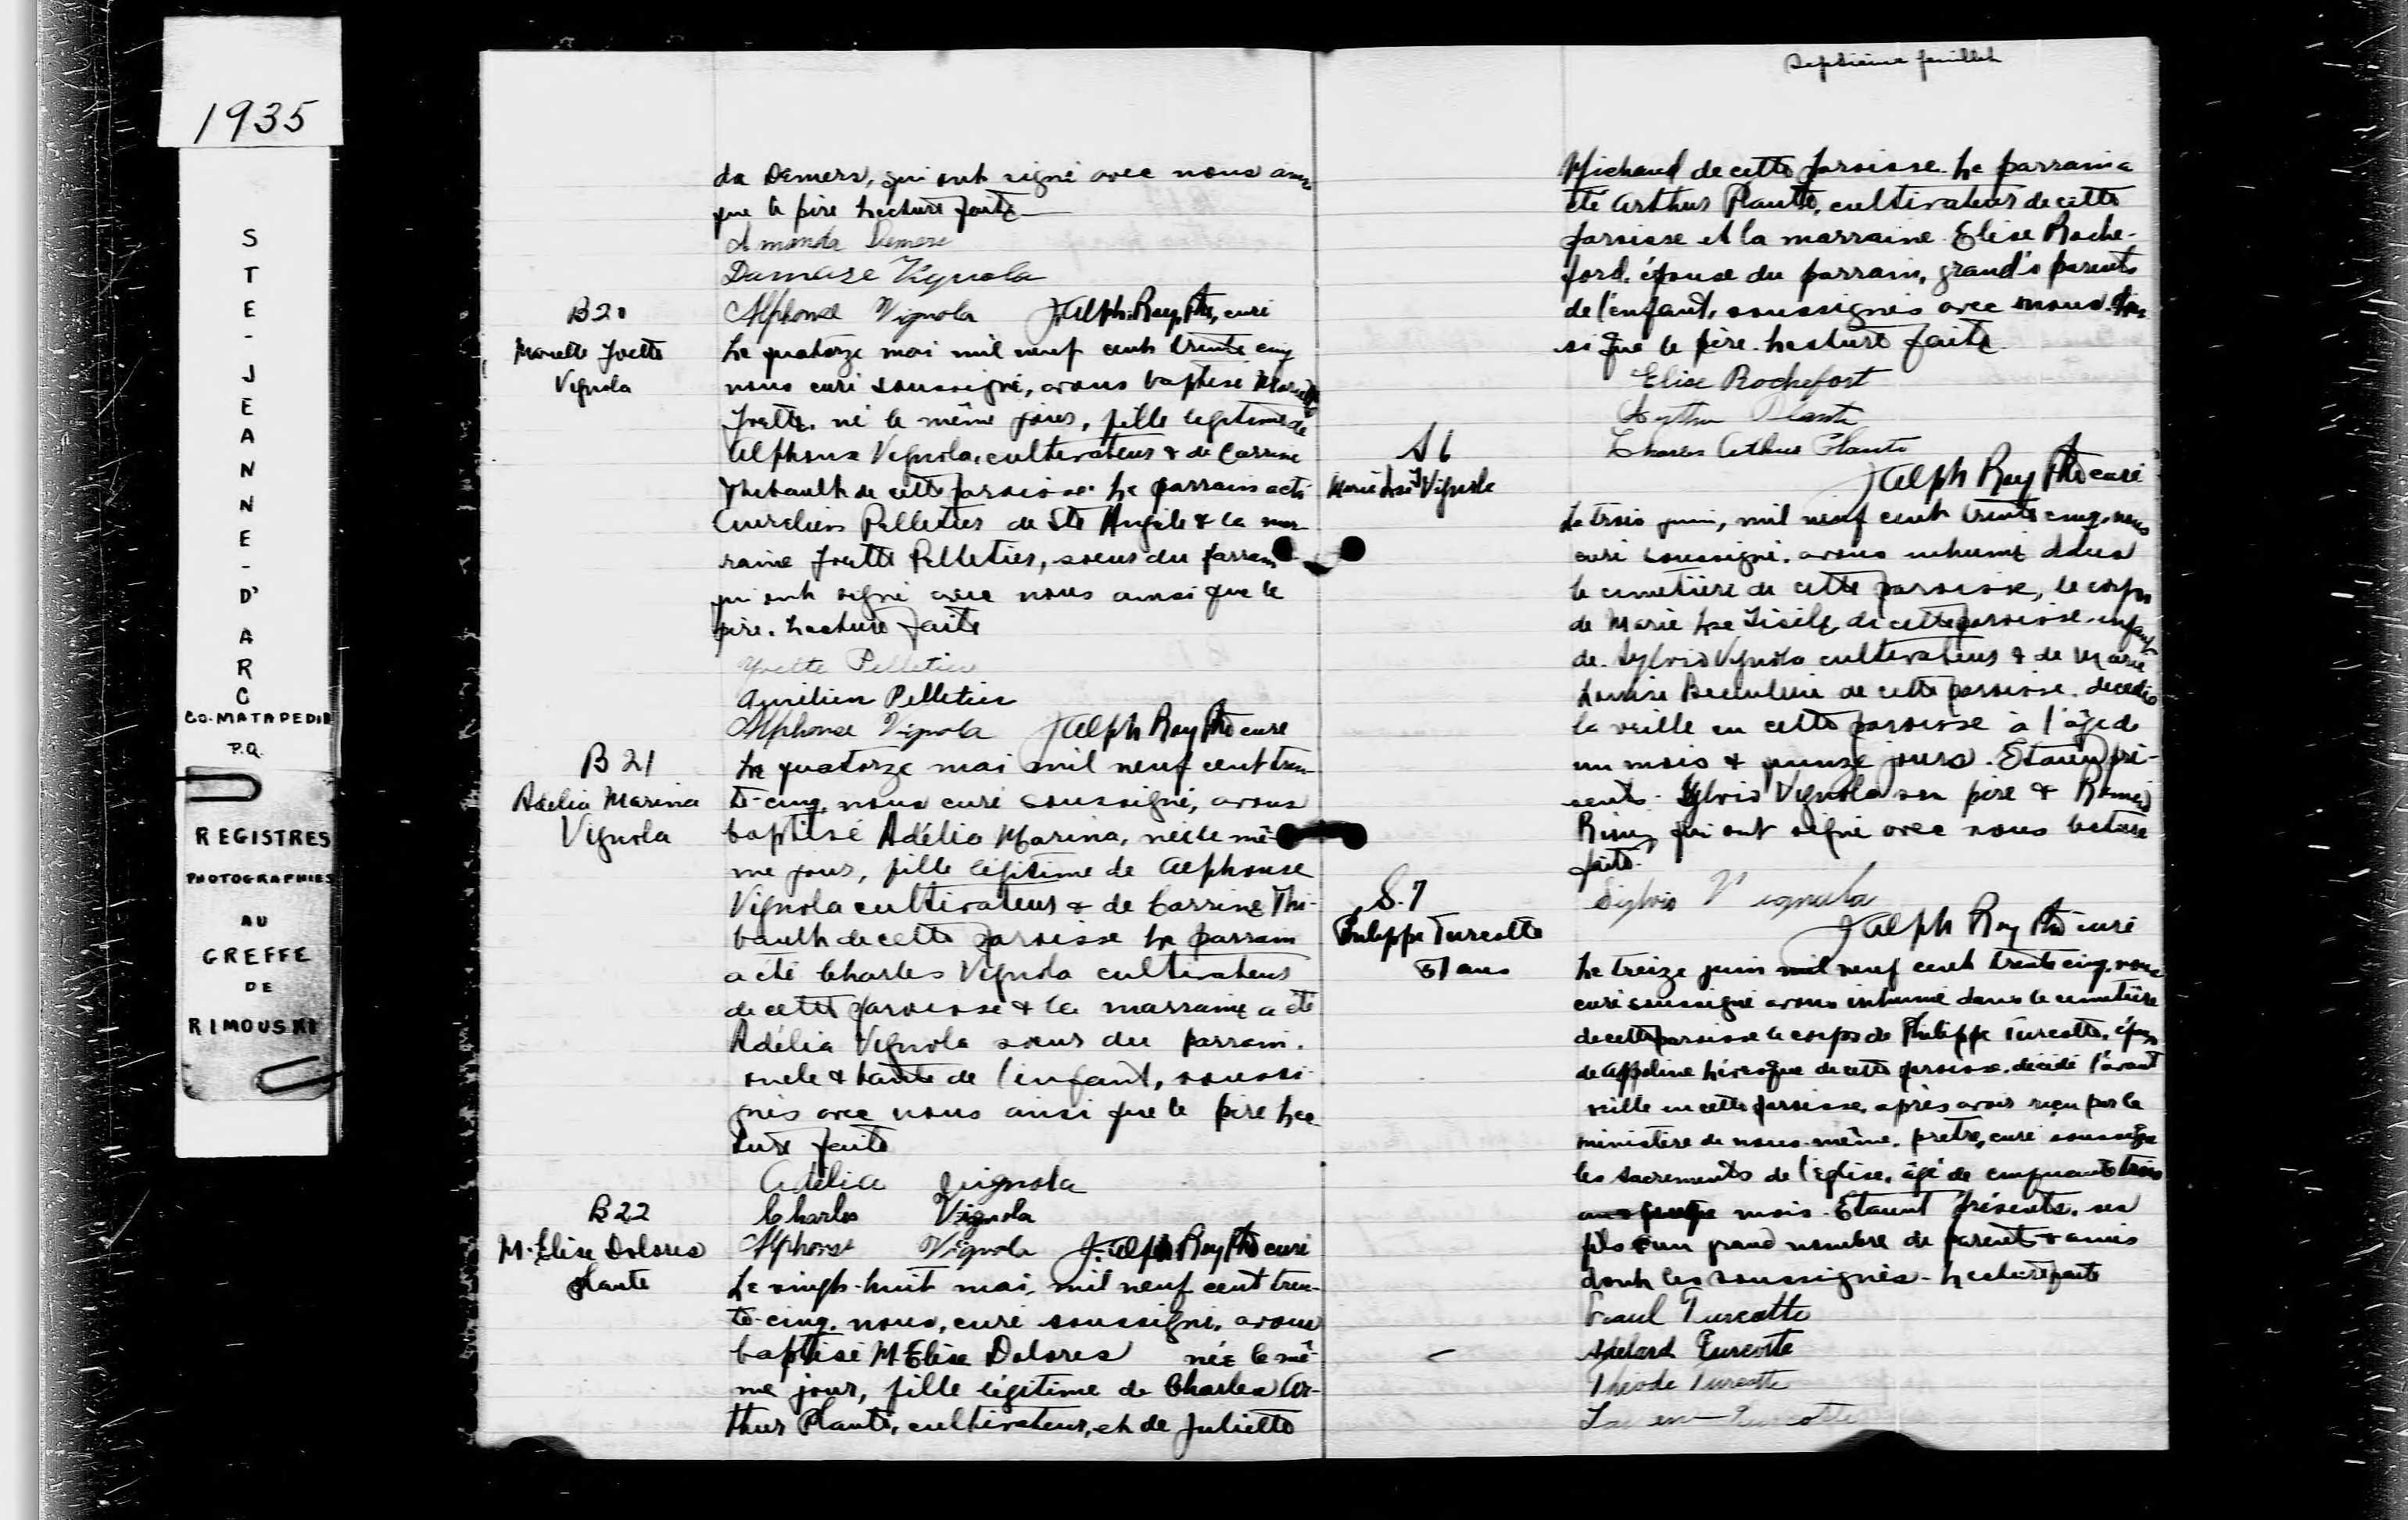 1935
STE-JEANNE-D'ARC
CO. MATAPEDIA
P.Q.
REGISTRES
PHOTOGRAPHIES
AU
GREFFE
DE
RIMOUSKI
da Demers, qui ont signé avec nous ainsi
que le père. Lecture faite
Amanda Demers
Damase Vignola
Alphonse Vignola J. Alph. Roy Ptre, curé
B 20
Yvette
Vignola
Le quatorze mai mil neuf cent trente cinq
nous curé soussigné, avons baptisé
Yvette, né le même jour, fille légitime de
Alphonse Vignola, cultivateur & de Corrine
Thibault de cette paroisse. Le parrain a été
Aurélien Pelletier de Ste Angèle & la mar
raine Yvette Pelletier, soeur du parrain
qui ont signé avec nous ainsi que le
père. Lecture faite
Yvette Pelletier
Aurélien Pelletier
Alphonse Vignola J Alph Roy Ptre curé
B 21
Adélia Marina
Vignola
Le quatorze mai mil neuf cent tren-
te-cinq, nous curé soussigné, avons
baptisé Adélia Marina, née le mê
me jour, fille légitime de Alphonse
Vignola cultivateur & de Corrine Thi-
bault de cette paroisse Le parrain
a été Charles Vignola cultivateur
de cette paroisse & la marraine a été
Adélia Vignola soeur du parrain.
oncle & tante de l'enfant, soussi-
gnés avec nous ainsi que le père Lec
ture faite
Adélia Vignola
Charles Vignola
Alphonse Vignola J. Alph Roy Ptre curé
B 22
M. Elise Dolores
Plante
Le vingt-huit mai, mil neuf cent tren-
te-cinq, nous, curé soussigné, avons
baptisé M. Elise Dolores née le mê-
me jour, fille légitime de Charles Ar-
thur Plante, cultivateur, et de Juliette
Septième feuillet
Michaud de cette paroisse. Le parrain a
été Arthur Plante, cultivateur de cette
paroisse et la marraine Elise Roche-
ford, épouse du parrain, grand's parents
de l'enfant, soussignés avec nous ain
si que le père. Lecture faite
Elise Rochefort
Arthur Plante
Charles Arthur Plante
J Alph Roy Ptre curé
S 6
Vignola
Le trois juin, mil neuf cent trente cinq, nous
curé soussigné, avons inhumé dans
le cimetière de cette paroisse, le corps
de Marie de cette paroisse, enfant
de Sylvio Vignola cultivateur & de Marie
Louise de cette paroisse, décédée
la veille en cette paroisse à l'âge de
un mois & quinze jours. Etaient pré-
sents. Sylvio Vignola son père &
qui ont signé avec nous lecture
faite.
Sylvio Vignola
J Alph Roy Ptre curé
S. 7
Philippe Turcotte
51 ans
Le treize juin mil neuf cent trente cinq, nous
curé soussigné avons inhumé dans le cimetière
de cette paroisse le corps de Philippe Turcotte, époux
de Appoline Lévesque de cette paroisse, décédé l'avant
veille en cette paroisse, après avoir reçu par le
ministère de nous-même, prêtre, curé soussigné
les sacrements de l'Eglise, âgé de cinquante trois
mois. Etaient présents, ses
fils & un grand nombre de parents & amis
dont les soussignés. Lecture faite
Paul Turcotte
Adelard Turcotte
Turcotte
Turcotte